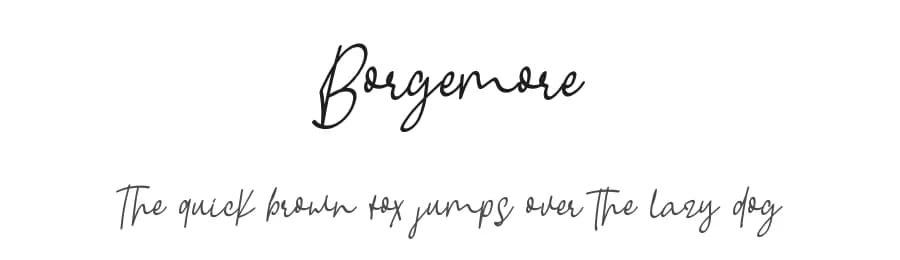 Borgemore
The quick brown fox jumps over The lazy dog